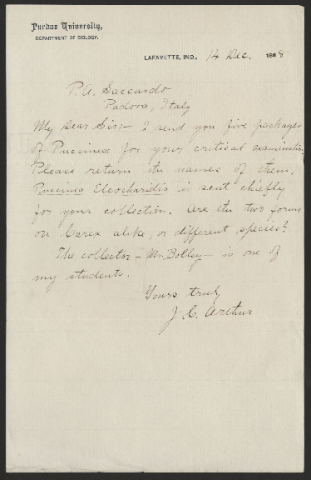 Purdue University,
DEPARTMENT OF BIOLOGY.
LAFAYETTE, IND., 14 Dec. 1888
P. A. Saccardo
Padova, Italy
My dear Sir:– I send you five packages
of Puccinea for your critical examination
Please return the names of them.
Puccinea Eleocharidis is sent chiefly
for your collection. Are the two forms
on Carex alike, or different species?
The collector – Mr. Bolley – is one of
my students.
Yours truly
J. C. Arthur